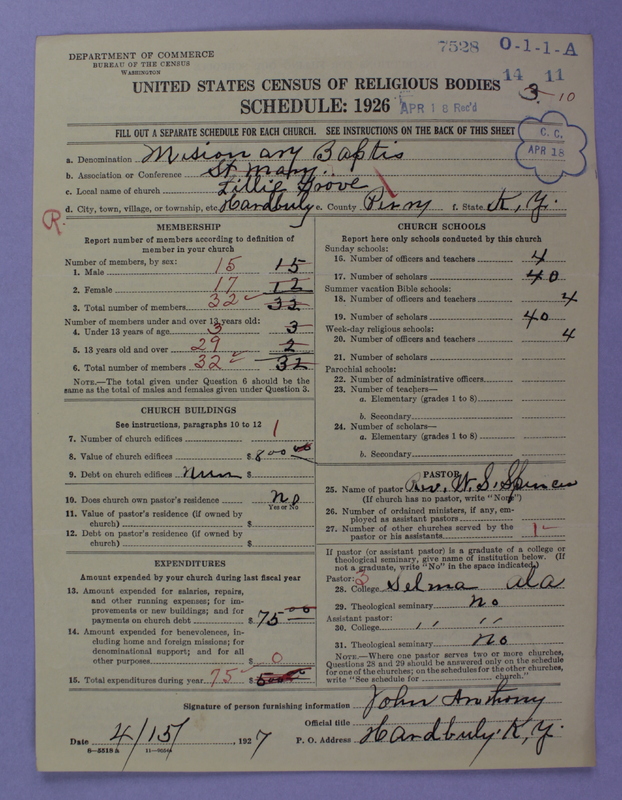 7528 O-1-1-A
DEPARTMENT OF COMMERCE
BUREAU OF THE CENSUS
WASHINGTON
14 11
UNITED STATES CENSUS OF RELIGIOUS BODIES
3. 10
SCHEDULE: 1926 APR 18 Rec'd
FILL OUT A SEPARATE SCHEDULE FOR EACH CHURCH. SEE INSTRUCTIONS ON THE BACK OF THIS SHEET
C. C.
APR 18
a. Denomination Misionary Baptis
b. Association or Conference St Mary
c. Local name of church Lillie Grove
d. City, town, village, or township, etc. Hardbuly e. County Perry f. State K,y.
R.
MEMBERSHIP
Report number of members according to definition of
member in your church
Number of members, by sex:
1. Male 15 15
2. Female 17 12
3. Total number of members 32 32
Number of members under and over 13 years old:
4. Under 13 years of age 3 3
5. 13 years old and over 29 2
6. Total number of members 32 32
NOTE.—The total given under Question 6 should be the
same as the total of males and females given under Question 3.
CHURCH BUILDINGS
See instructions, paragraphs 10 to 12
7. Number of church edifices 1
8. Value of church edifices $ 800 00
9. Debt on church edifices $
10. Does church own pastor's residence No
Yes or No
11. Value of pastor's residence (if owned by
church) $
12. Debt on pastor's residence (if owned by
church) $
EXPENDITURES
Amount expended by your church during last fiscal year
13. Amount expended for salaries, repairs,
and other running expenses; for im-
provements or new buildings; and for
payments on church debt $ 75 00
14. Amount expended for benevolences, in-
cluding home and foreign missions; for
denominational support; and for all
other purposes $ 0
15. Total expenditures during year 75 $
CHURCH SCHOOLS
Report here only schools conducted by this church
Sunday schools:
16. Number of officers and teachers 4
17. Number of scholars 40
Summer vacation Bible schools:
18. Number of officers and teachers 4
19. Number of scholars 40
Week-day religious schools:
20. Number of officers and teachers 4
21. Number of scholars
Parochial schools:
22. Number of administrative officers
23. Number of teachers—
a. Elementary (grades 1 to 8)
b. Secondary
24. Number of scholars—
a. Elementary (grades 1 to 8)
b. Secondary
PASTOR
25. Name of pastor Rev. W. S. Spencer
(If church has no pastor, write "None")
26. Number of ordained ministers, if any, em-
ployed as assistant pastors
27. Number of other churches served by the
pastor or his assistants 1
If pastor (or assistant pastor) is a graduate of a college or
theological seminary, give name of institution below. (If
not a graduate, write "No" in the space indicated)
Pastor: 2
28. College Selma ala
29. Theological seminary No
Assistant pastor:
30. College ,, ,,
31. Theological seminary No
NOTE.—Where one pastor serves two or more churches,
Questions 28 and 29 should be answered only on the schedule
for one of the churches; on the schedules for the other churches,
write "See schedule for church."
Signature of person furnishing information John Anthony
Official title
Date 4/15/, 1927 P. O. Address Hardbuly. K,y.